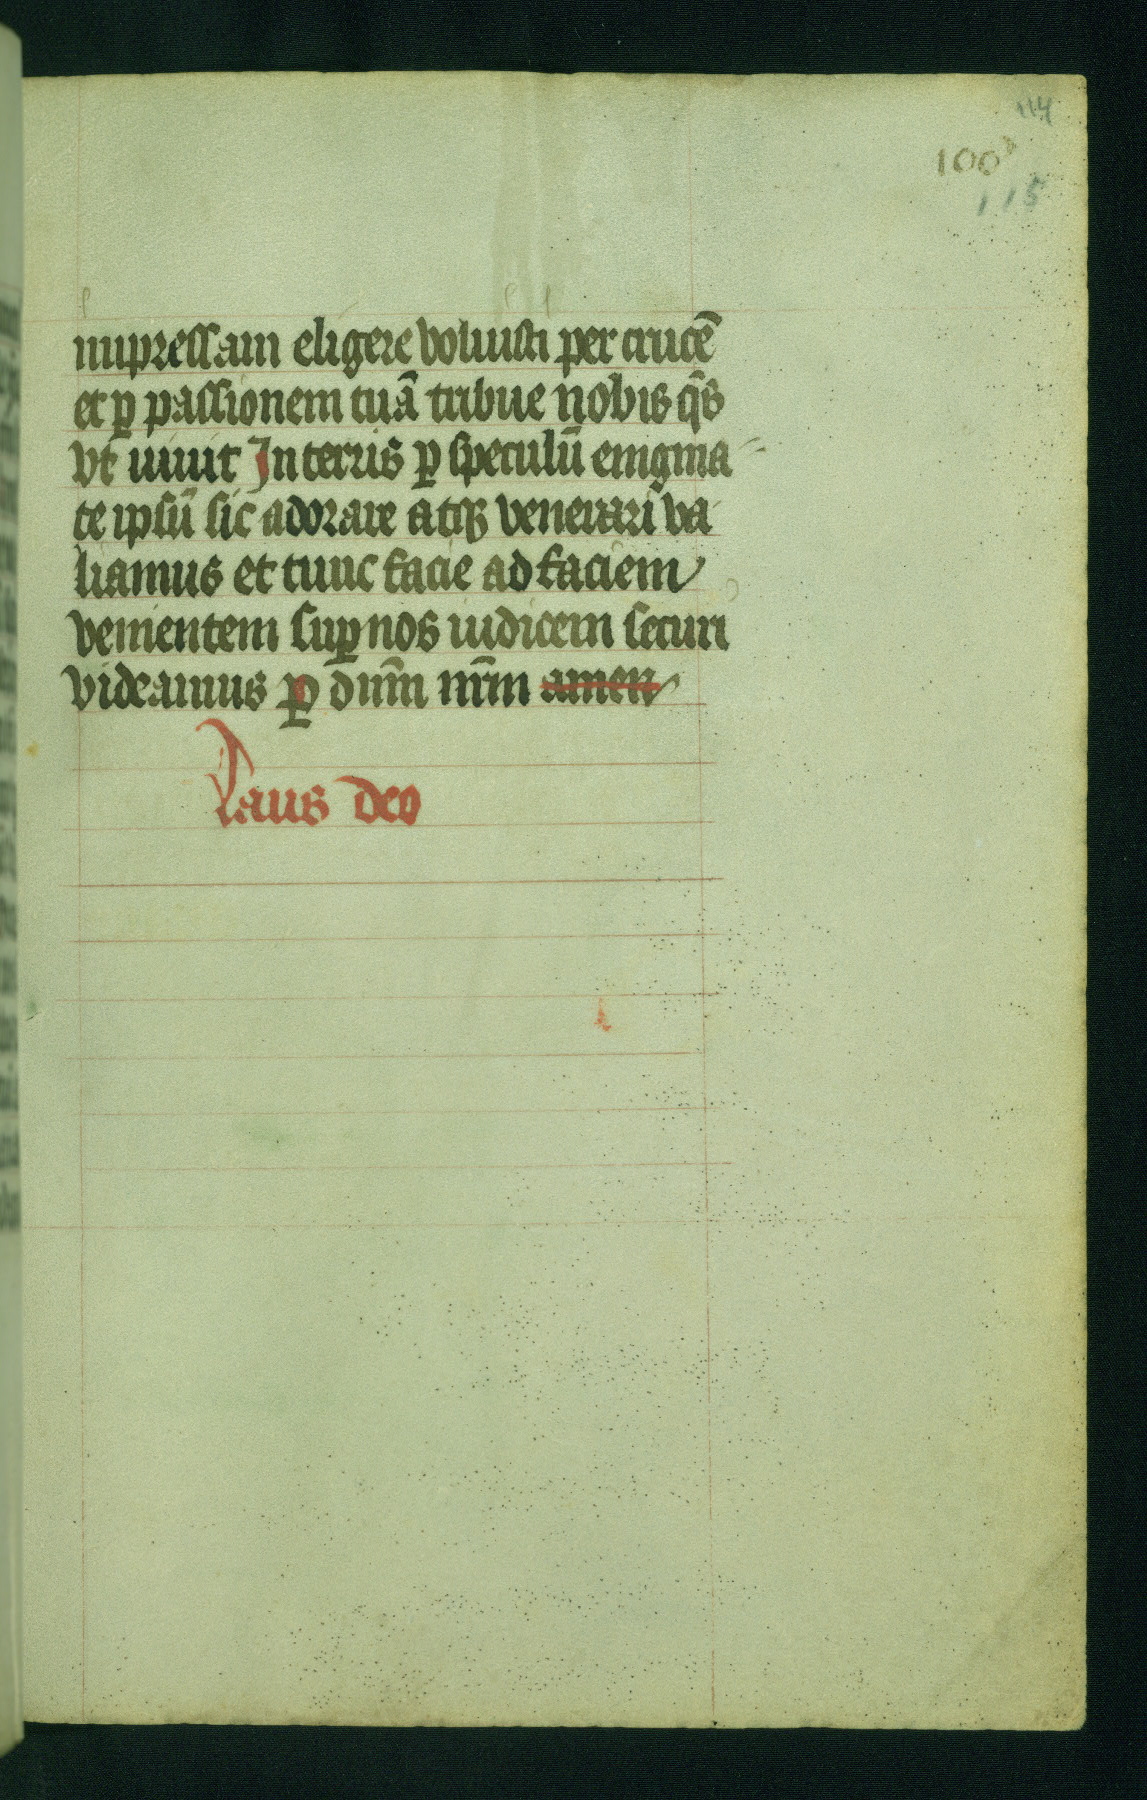 114
100
115
impressam eligere voluisti per crucē
et ꝑ passionem tuā tribue nobis q̄s
vt uiuit In terris ꝑ speculū enigma
te ipsū sic adorare atqꝫ venerari va
liamus et tunc facie ad faciem
venientem suꝑ nos iudicem securi
videamus ꝑ dn̄m nr̄m amen
Laus deo